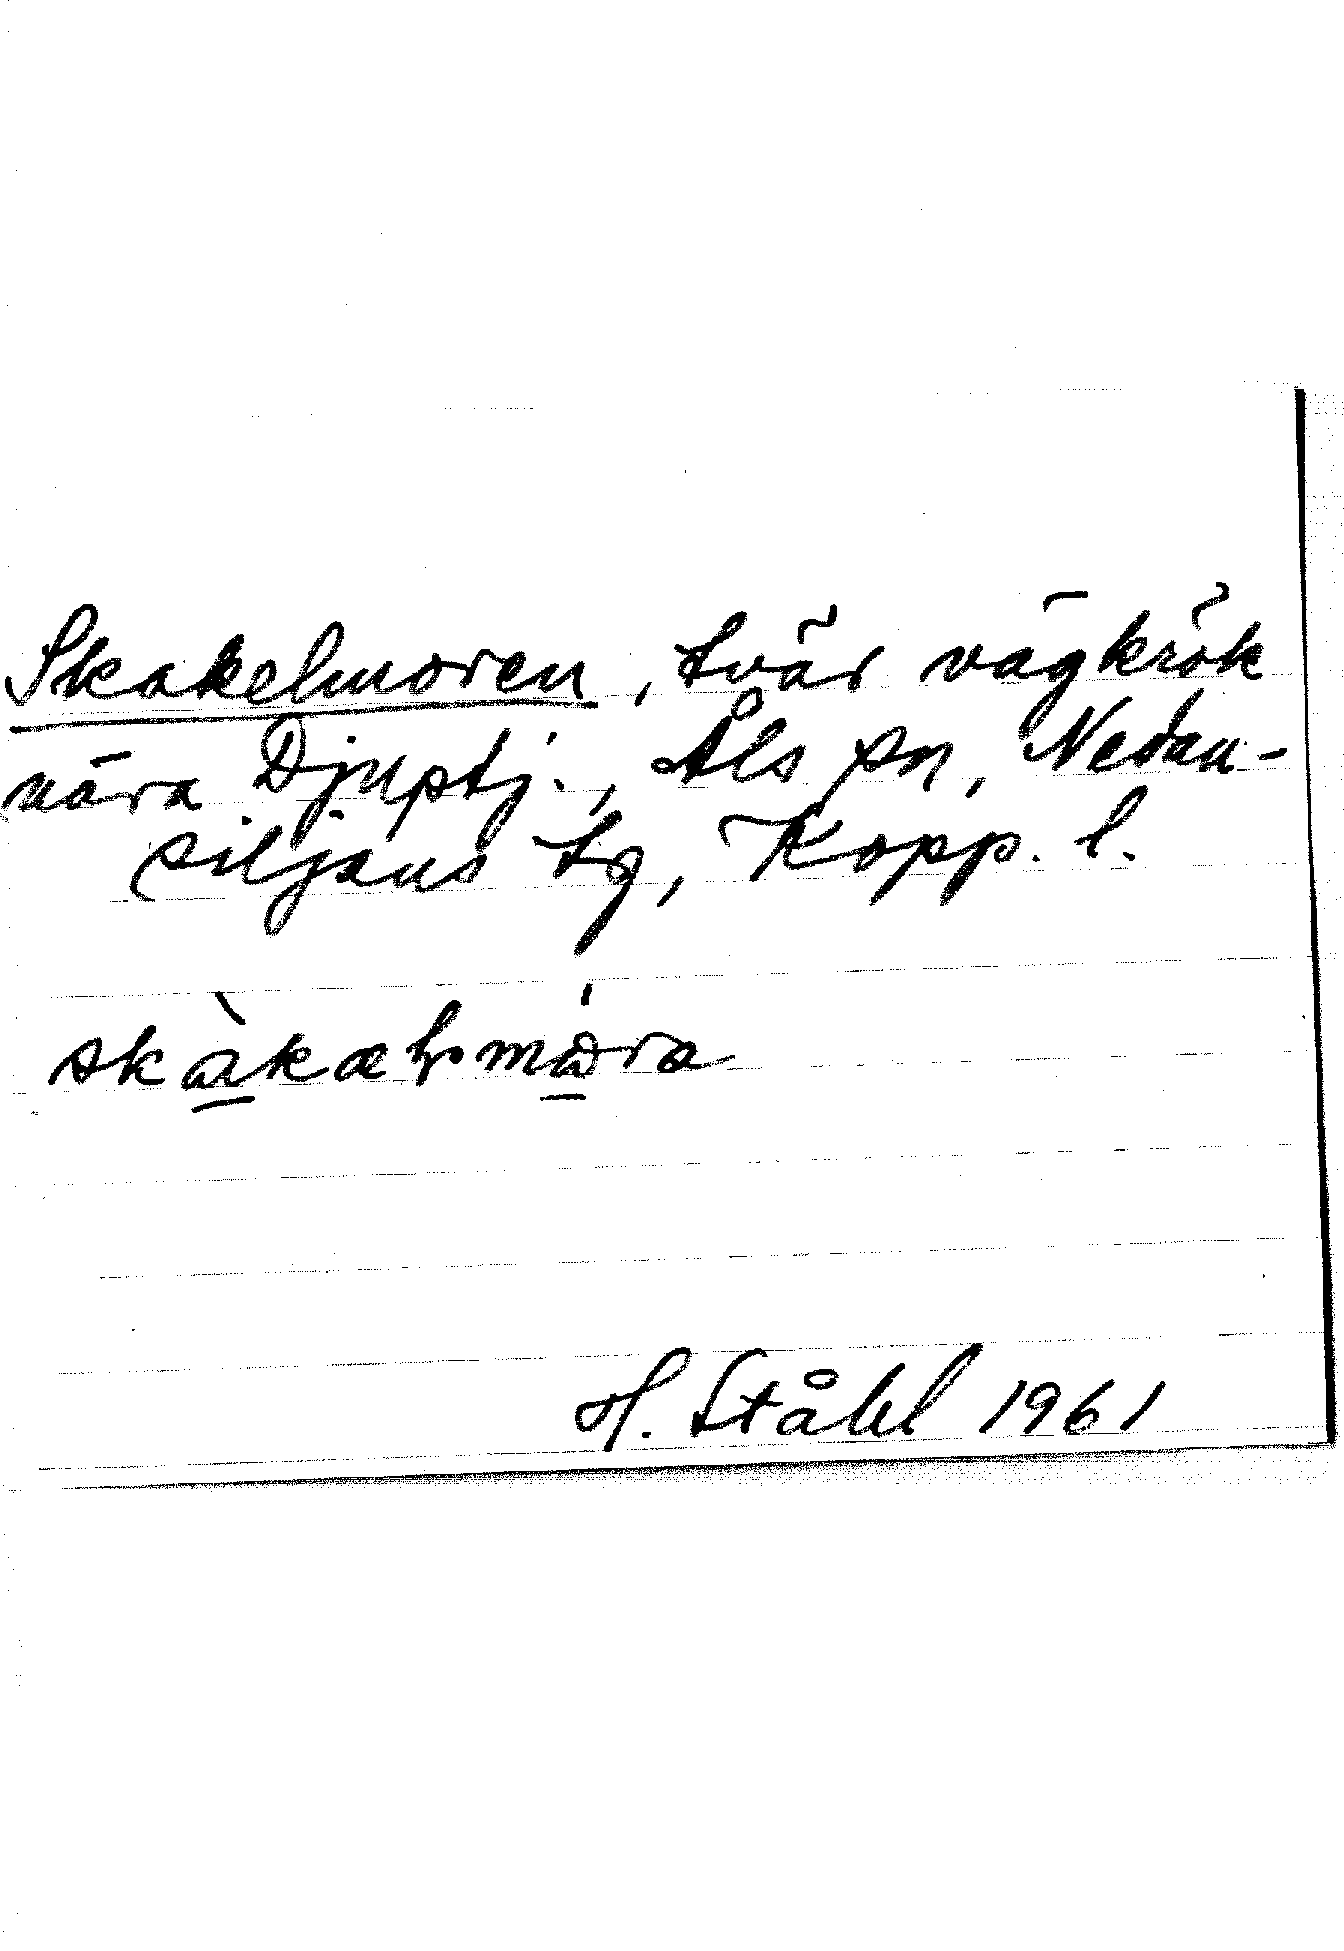 Skakelmoren, tvär vägkrök
nära Djuptj., Åls sn, Nedan-
siljans tg, Kopp. l.
H. Ståhl 1961